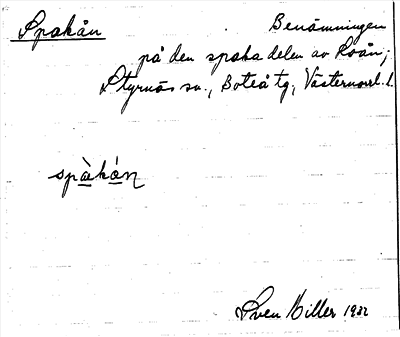 Spakån Benämningen
på den spaka delen av Roån;
Styrnäs sn., Boteå tg, Västernorrl. l.
spàkán
Sven Hiller 1932